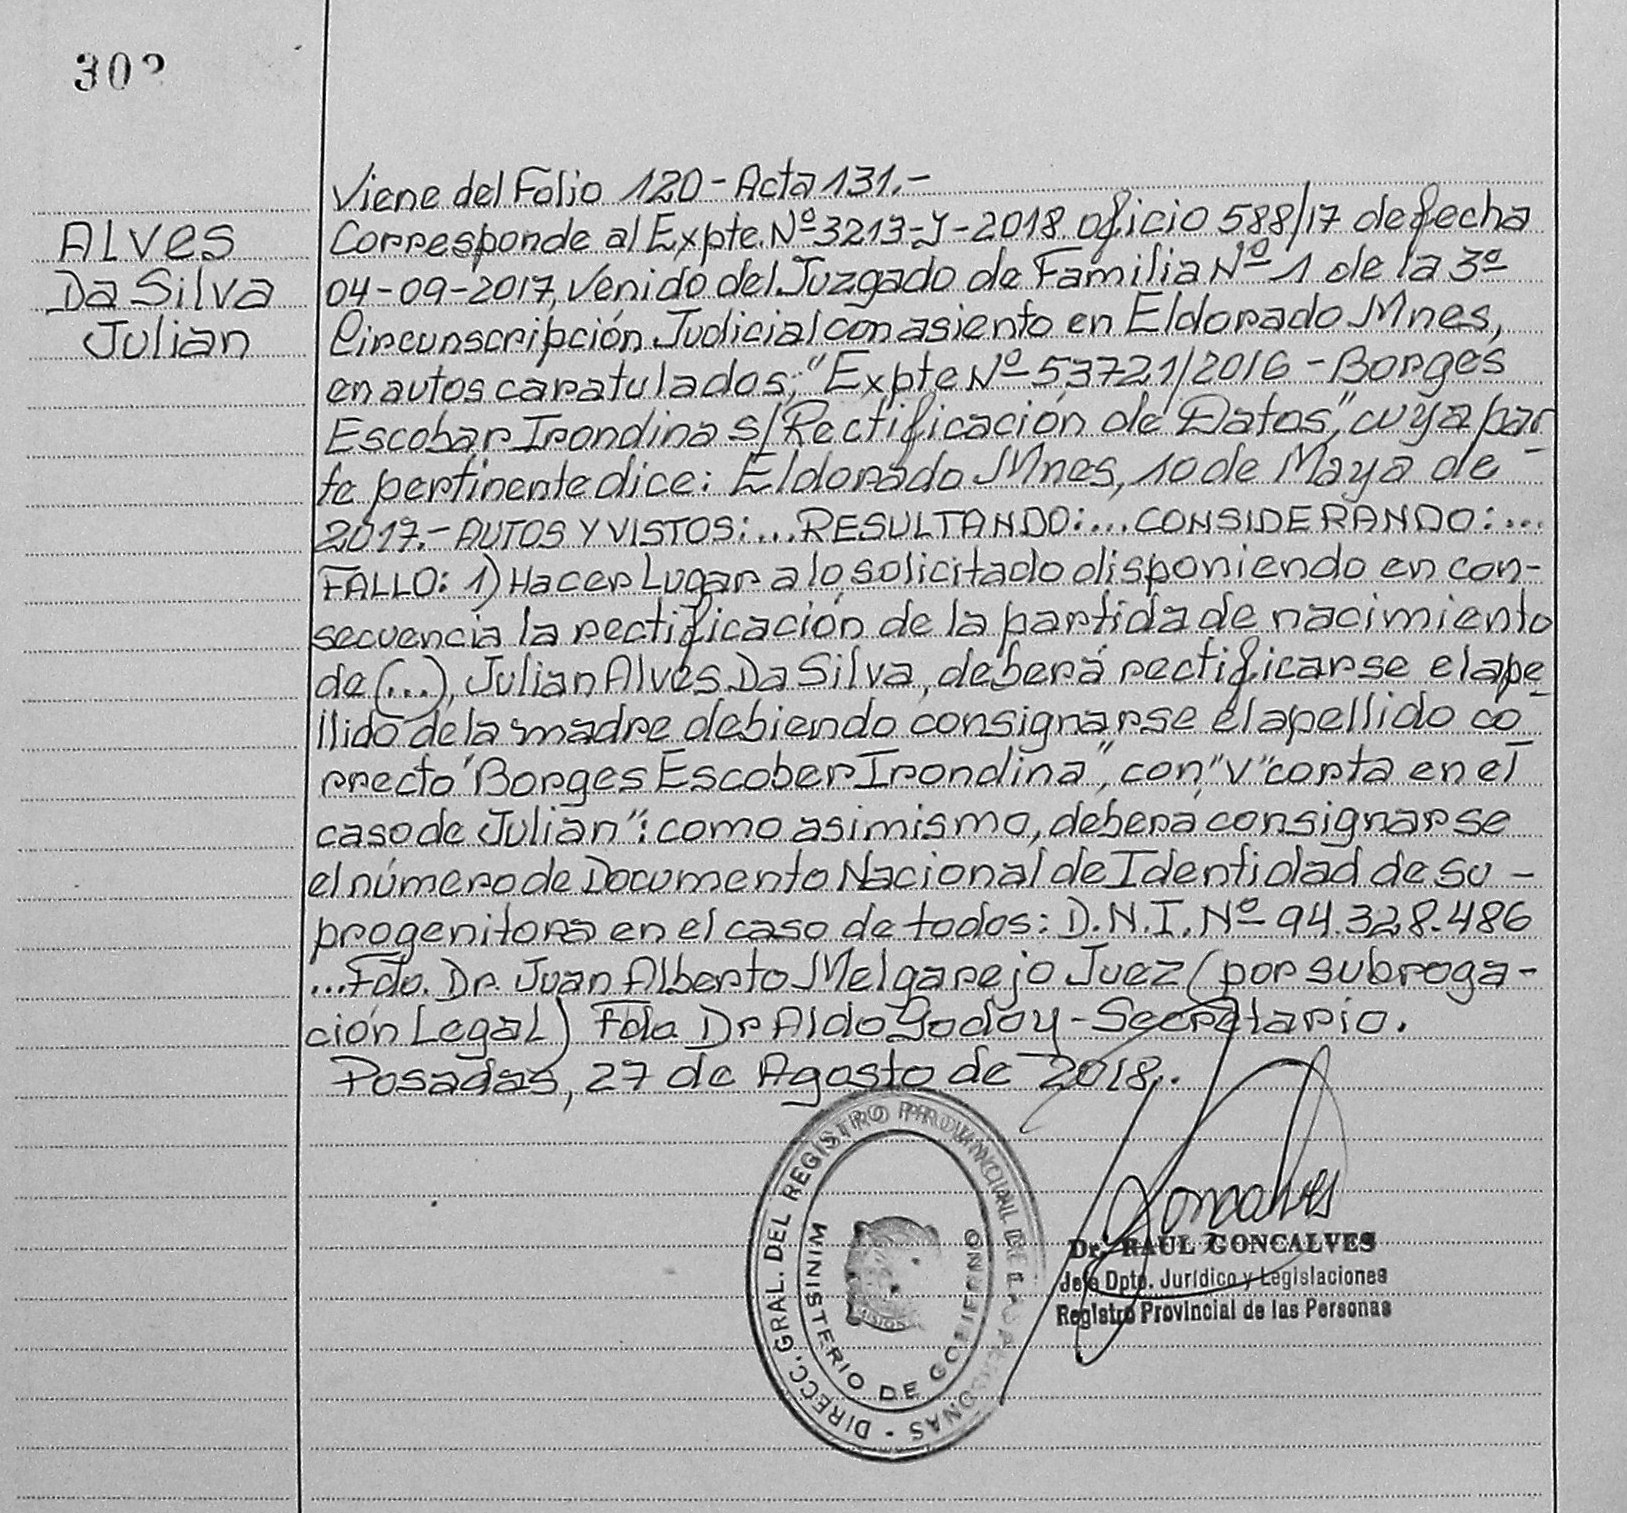 302
ALVes
Da Silva
Julian
Viene del Folio 120 - Acta 131.-
Corresponde al Expte. Nº 3213-J-2018 oficio 588/17 de fecha
04-09-2017, Venido del Juzgado de Familia Nº 1 de la 3ª
Circunscripción Judicial con asiento en Eldorado Mnes,
en autos caratulados; "Expte Nº 53721/2016 - Borges
Escobar Irondina s/Rectificación de Datos", cuya par-
te pertinente dice: Eldorado Mnes, 10 de Mayo de
2017.- AUTOS Y VISTOS:... RESULTANDO:... CONSIDERANDO:...
FALLO: 1) Hacer Lugar a lo solicitado disponiendo en con-
secuencia la rectificación de la partida de nacimiento
de (...), Julian Alves Da Silva, deberá rectificarse el ape-
llido de la madre debiendo consignarse el apellido co-
rrecto "Borges Escober Irondina", con "v" corta en el
caso de Julian": como asimismo, deberá consignarse
el número de Documento Nacional de Identidad de su -
progenitora en el caso de todos: D.N.I. Nº 94.328.486
...Fdo. Dr. Juan Alberto Melgarejo Juez (por subroga-
ción Legal) Fdo. Dr Aldo Godoy - Secretario.
Posadas, 27 de Agosto de 2018.
DIRECC. GRAL. DEL REGISTRO PROVINCIAL DE LAS PERSONAS -
MINISTERIO DE GOBIERNO
Goncalves
Dr. RAUL GONCALVES
Jefe Dpto. Jurídico y Legislaciones
Registro Provincial de las Personas